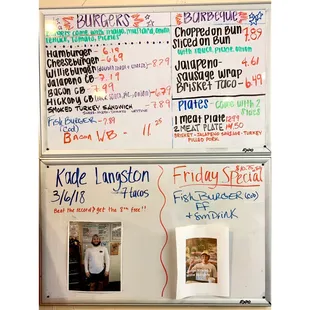 BURGERS
lettuce, tomato, pickles
Hamburger - 6.19
Cheeseburger - 6.69
Willieburger - 8.29
Jalapeño CB - 7.19
Bacon CB - 7.99
Hickory CB
SMOKED TURKEY SANDWICH - 7.89
Fish Burger - 7.89
(cod)
Bacon WB
11 25
BARBEQUE
Chopped on Bun 7.89
Sliced on Bun
with sauce, pickle, onion
Jalapeño - 4.61
Sausage wrap
Brisket Taco - 6.49
Plates - Come with 2 Sides
1 meat Plate
2 MEAT PLATE
BRISKET - JALAPENO SAUSAGE - TURKEY
PULLED PORK
Kade Langston
3/6/18 7 tacos
Beat the record? get the 8th free!!
Friday Special
Fish Burger (cod)
FF
+ sm Drink